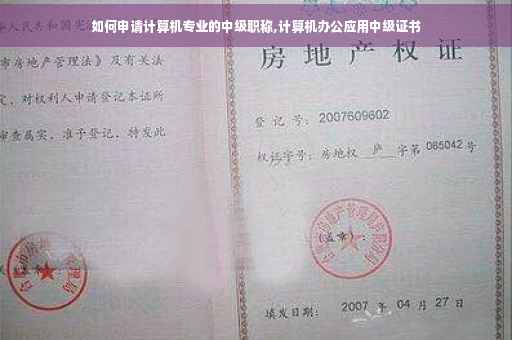 如何申请计算机专业的中级职称,计算机办公应用中级证书
人民共和国宪
市房地产管理法》及有关法
定，对权利人申请登记本证所
审查属实，准予登记，特发此
房地产权证
登记号：2007609602
权证字号：房地权 庐 字第 085042 号
(盖章)：
房地产管理局
填发日期： 2007 年 04 月 27 日